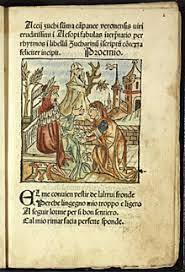 Accij zuchi summa cāpanee veronensis viri
eruditissimi ī Aesopi fabulas īterptatio per
rhythmos ī libellū Zucharinū īscriptū cōtexta
feliciter incipit. PROEMIO.
EL me conuien vestir de laltrui fronde
Perche lingegno mio troppo e ligero
A seguir lorme per si bon sentiero.
Cal mio rimar facia perfette sponde.